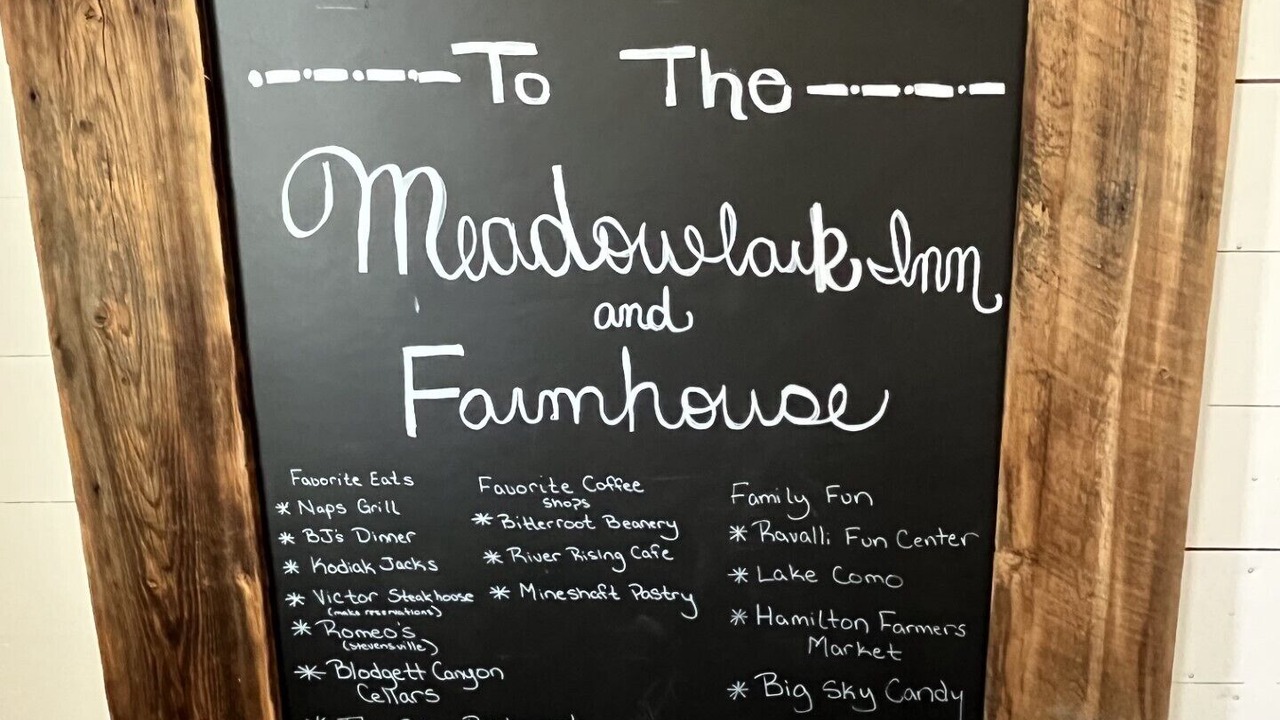 To The
Meadowlark Inn
and
Farmhouse
Favorite Eats
* Naps Grill
* BJ's Dinner
* Kodiak Jacks
* Victor Steakhouse
(make reservations)
* Romeo's
(stevensville)
* Blodgett Canyon
Cellars
Favorite Coffee
shops
* Bitterroot Beanery
* River Rising Cafe
* Mineshaft Pastry
Family Fun
* Ravalli Fun Center
* Lake Como
* Hamilton Farmers
Market
* Big Sky Candy